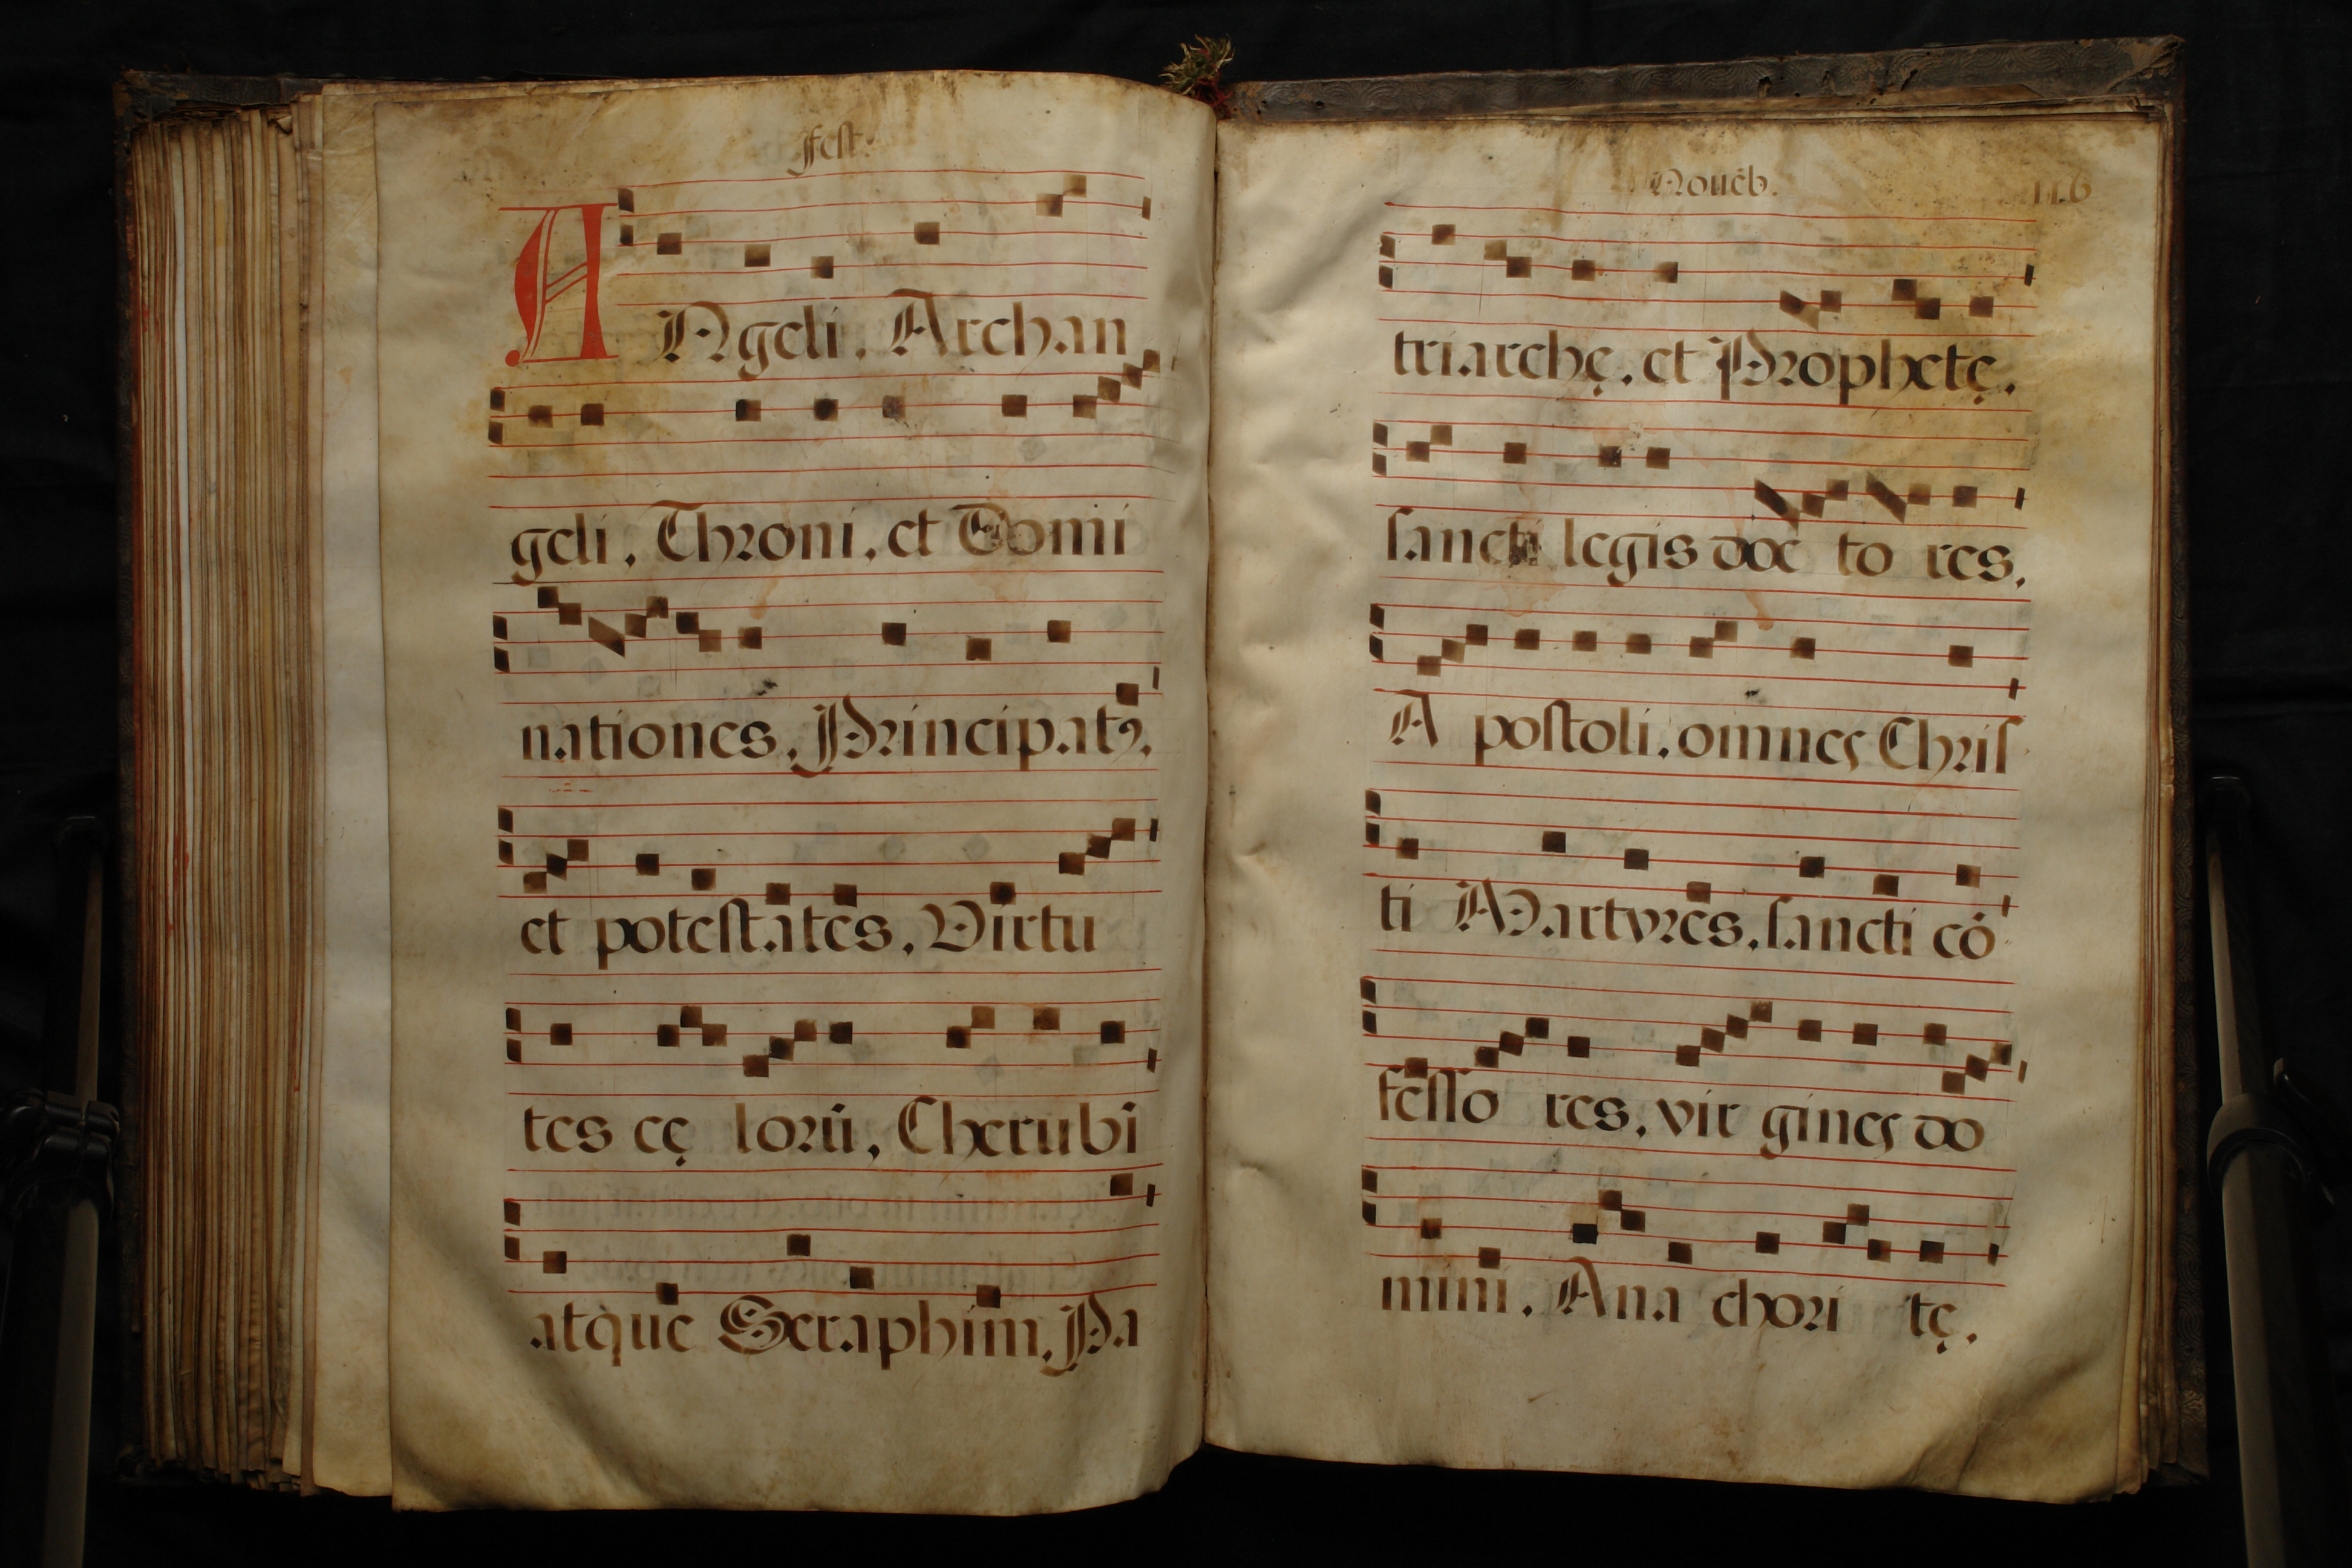 fest.
ANgeli, Archan
geli, Throni, et Domi
nationes, Principatꝯ,
et potestates, Virtu
tes cę lorū, Cherubi
atque Seraphim, Pa
Nouēb. 116
triarchę, et Prophetę,
sancti legis doc to res,
A postoli, omnes Chris
ti Martyres, sancti cō
fesso res, vir gines do
mini, Ana chori tę,